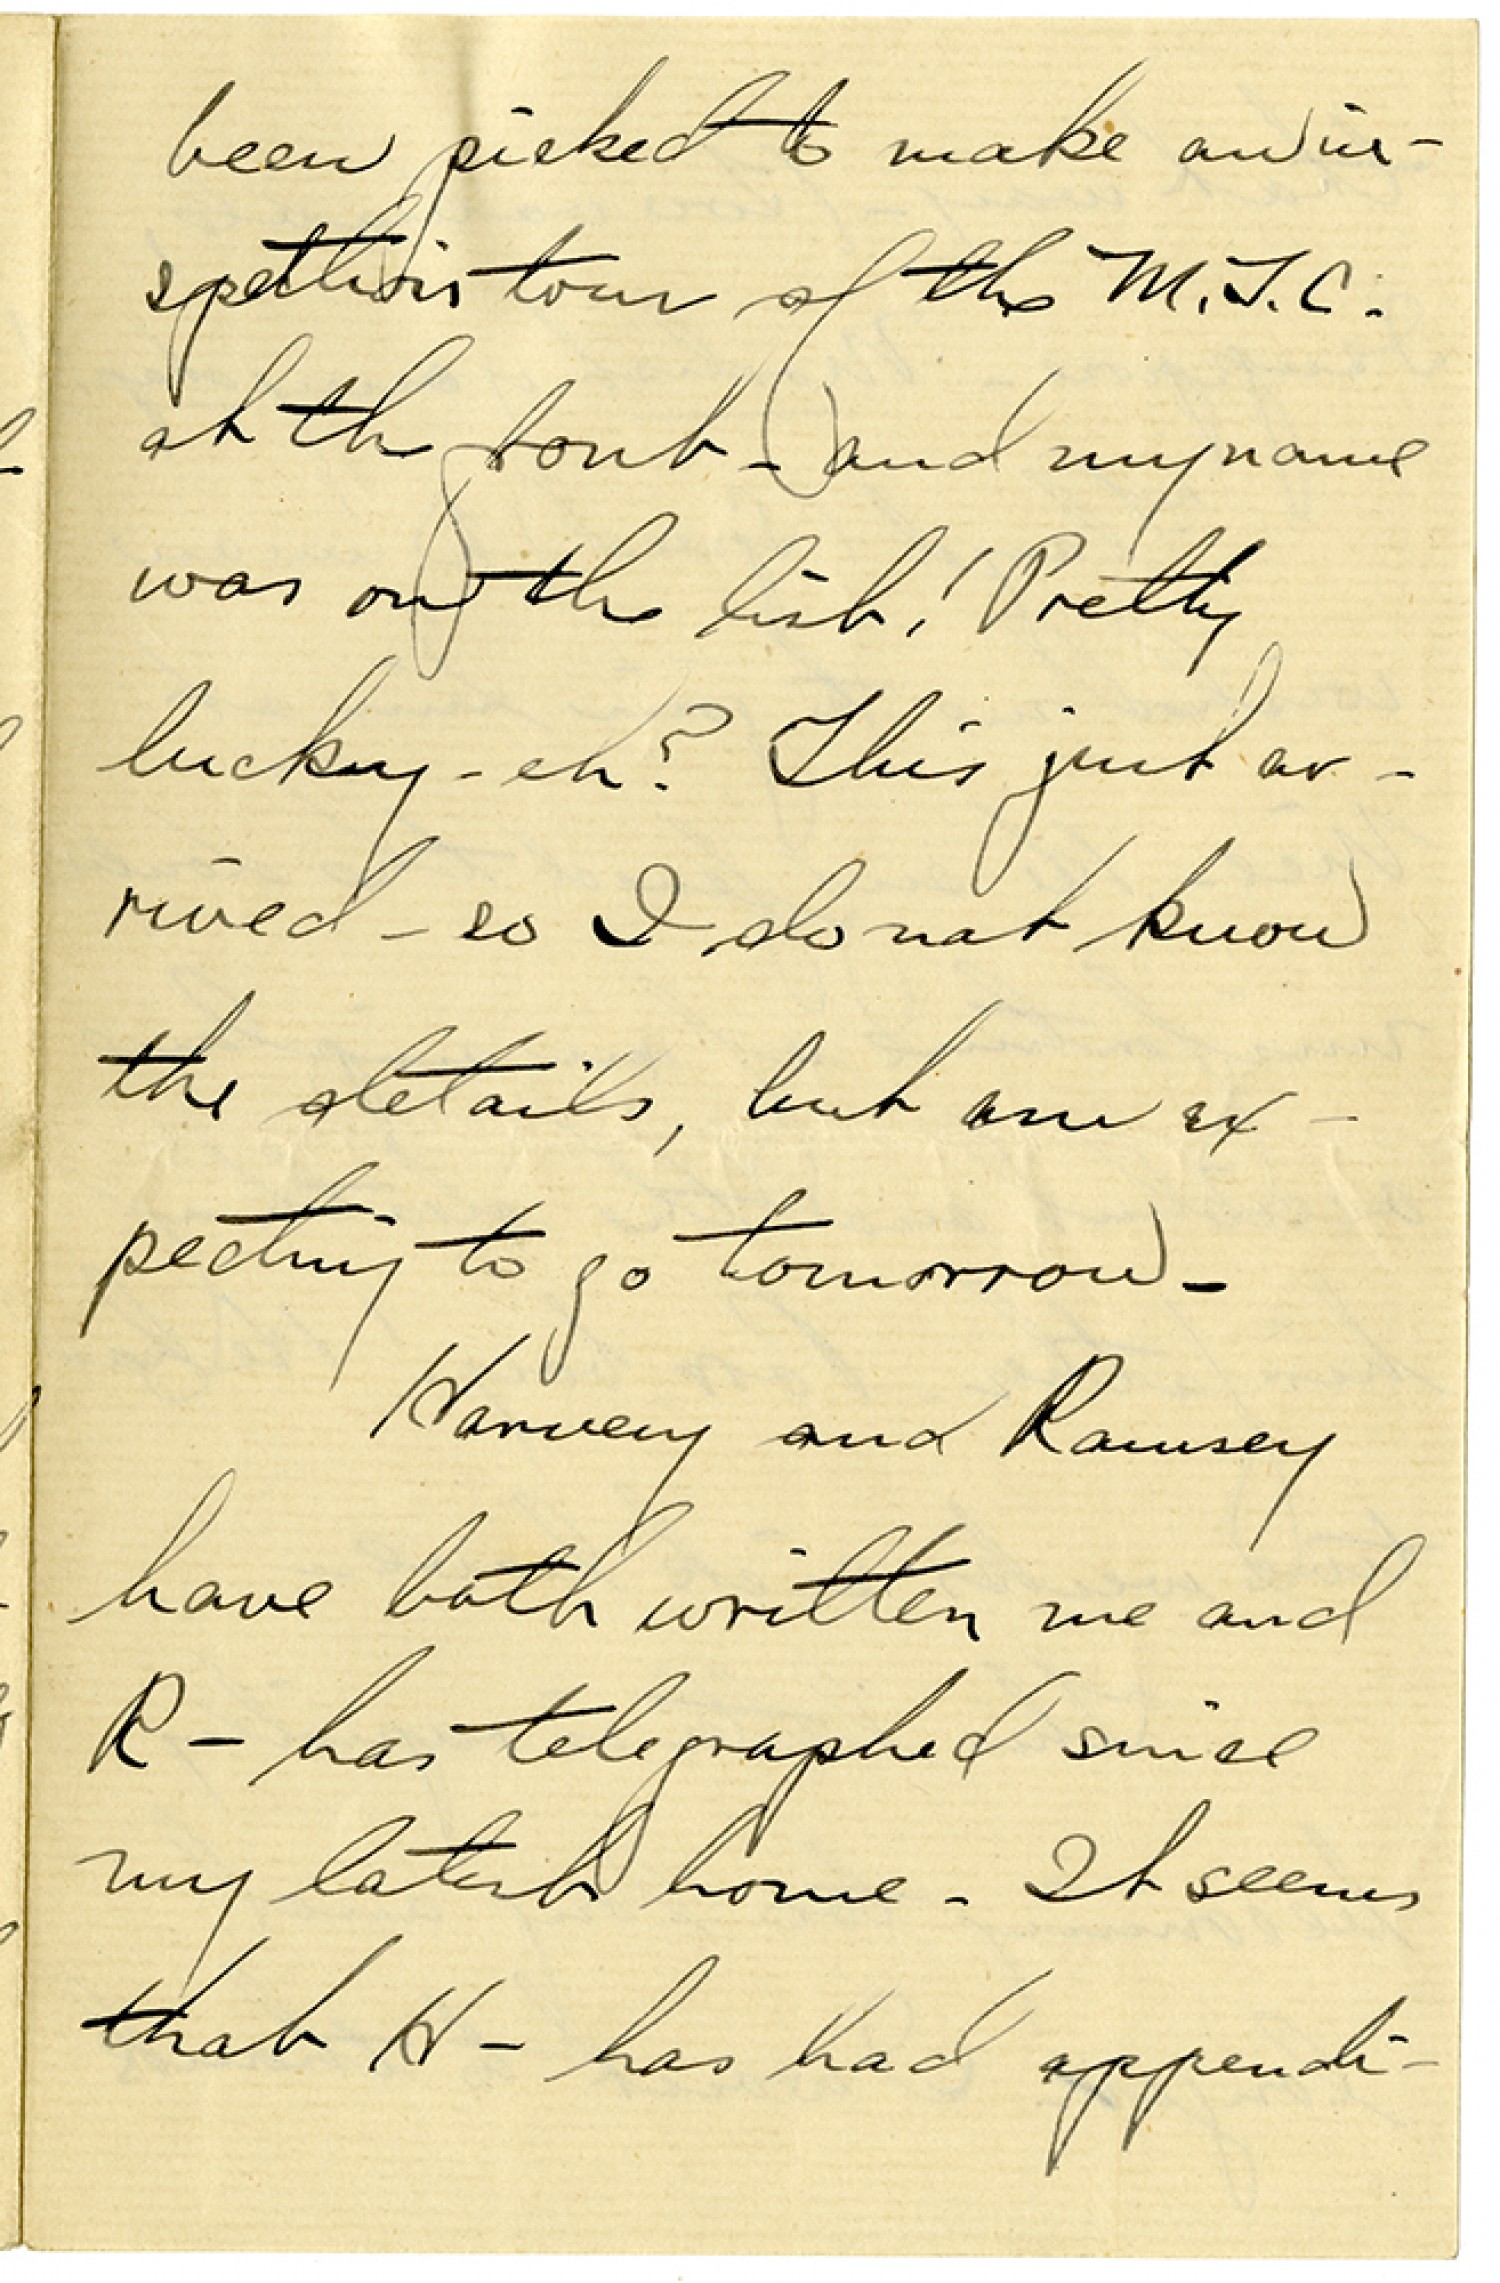 been picked to make an in-
spection tour of the M.T.C.
at the front - and my name
was on the list! Pretty
lucky - eh? This just ar-
rived - so I do not know
the details, but am ex-
pecting to go tomorrow -
Harvey and Ramsey
have both written me and
R - has telegraphed since
my latest home - It seems
that H - has had appendi-